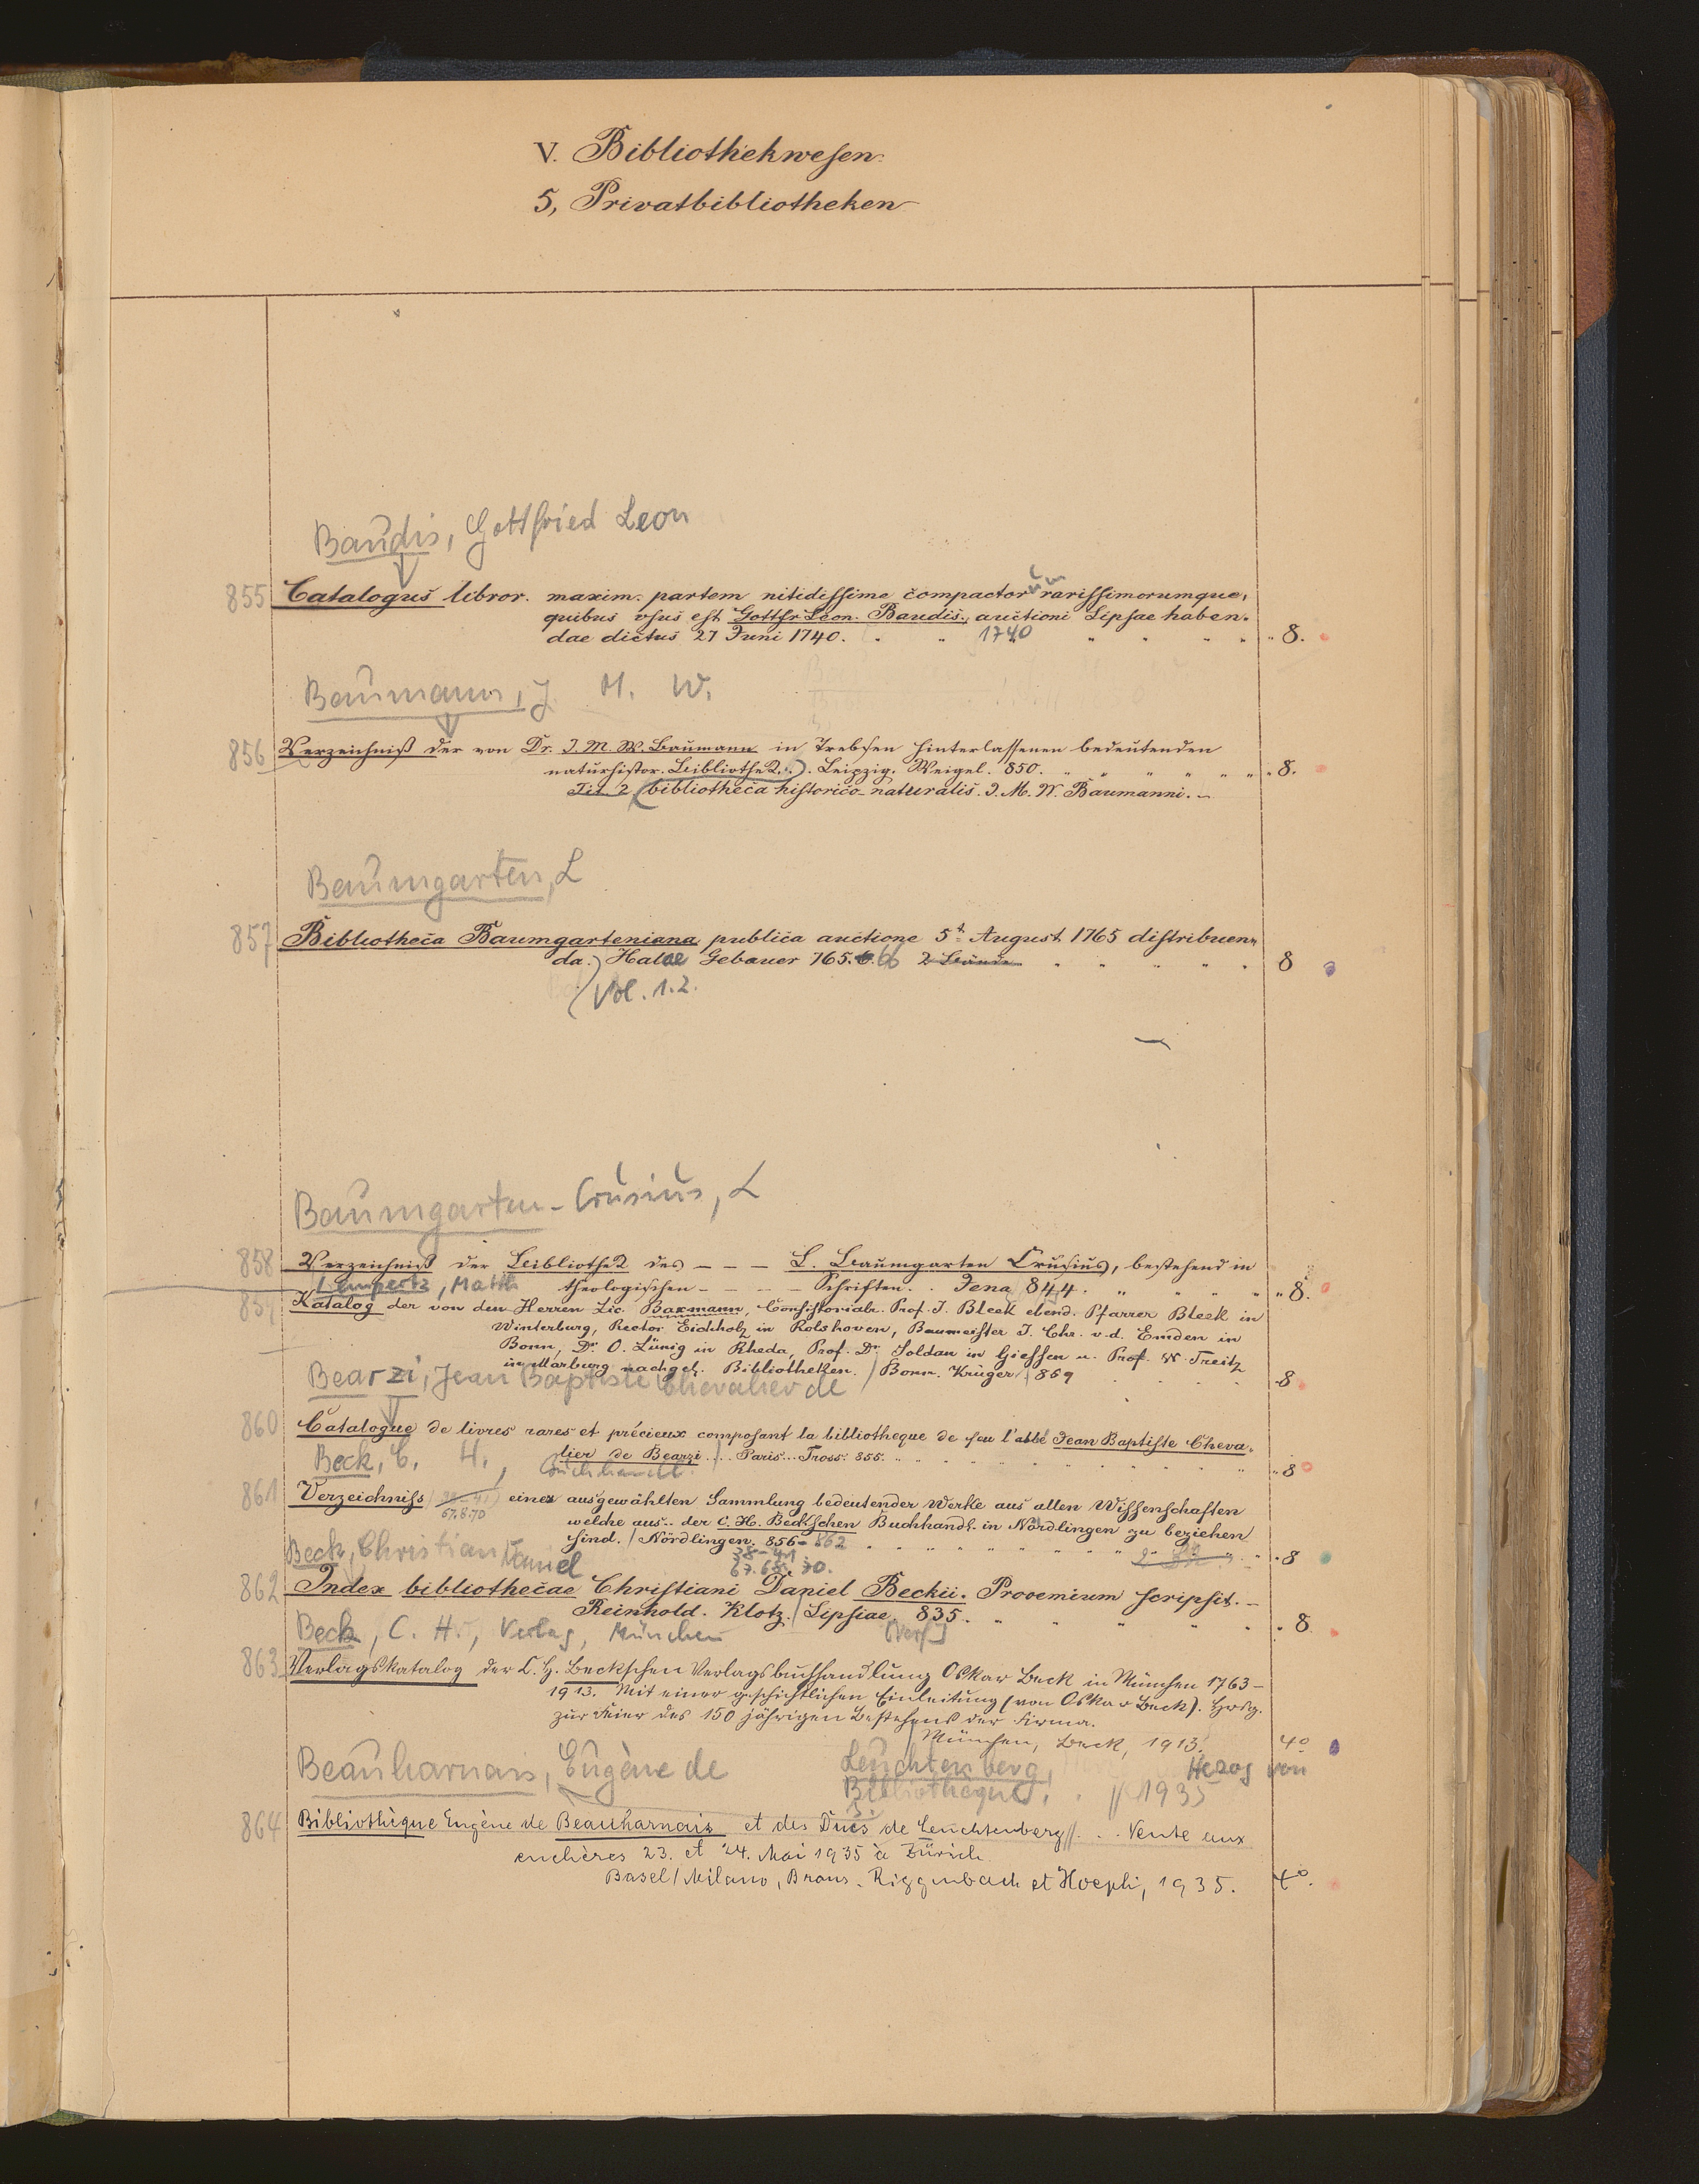 V. Bibliothekwesen.
5, Privatbibliotheken
Baudis, Gottfried Leon
855 Catalogus libror. maxim. partem nitidissime compactorum rarissimorumque,
quibus usus est Gottfr Leon. Baudis., auctioni Lipsae haben-
dae dictus 27 Juni 1740. 1740 8.
Baumann, J. M. W.
856 Verzeichniß der von Dr. J. M. W. Baumann in Trebsen hinterlassenen bedeutenden
naturhistor. Bibliothek. Leipzig. Weigel. 850. 8.
Tit. 2 bibliotheca historico-naturalis. J. M. W. Baumanni. –
Baumgarten, L
857 Bibliotheca Baumgarteniana publica auctione 5t. August 1765 distribuen-
da. Halae Gebauer 765. 66 2 Bände 8
Vol. 1. 2.
Baumgarten-Crusius, L
858 Verzeichniß der Bibliothek des – – – L. Baumgarten Crusius, bestehend in
theologischen – – – – Schriften. Jena 844. 8.
Lempertz, Matth
859 Katalog der von den Herren Lic. Baxmann, Consistorialr. Prof. J. Bleek ebend. Pfarrer Bleek in
Winterburg, Rector Eichholz in Rolshoven, Baumeister J. Chr. v. d. Emden in
Bonn, Dr. O. Lünig in Rheda, Prof. Dr. Soldan in Giessen u. Prof. W. Treitz
in Marburg nachgel. Bibliotheken. Bonn. Krüger 869 8
Bearzi, Jean Baptiste Chevalier de
860 Catalogue de livres rares et précieux composant la bibliotheque de feu l'abbé Jean Baptiste Cheva-
lier de Bearzi.... Paris... Tross. 855. 8
Beck, C. H., Buchhandl.
861 Verzeichniss (38–41) einer ausgewählten Sammlung bedeutender Werke aus allen Wissenschaften
67.8.70
welche aus.. der C. H. Beck'schen Buchhandl. in Nördlingen zu beziehen
sind. Nördlingen. 856–862 8
38–41
67. 68. 70.
Beck, Christian Daniel
862 Index bibliothecae Christiani Daniel Beckii. Prooemium scripsit. –
Reinhold. Klotz. Lipsiae 835. 8
[Verf]
Beck, C. H., Verlag, München
863 Verlagskatalog der C. H. Beckschen Verlagsbuchhandlung Oskar Beck in München 1763–
1913. Mit einer geschichtlichen Einleitung (von Oskar Beck). Hrsg.
zur Feier des 150 jährigen Bestehens der Firma.
München, Beck, 1913. 4°
Beauharnais, Eugène de
Leuchtenberg, Herzog von
Bibliothèque. // 1935
864 Bibliothèque Eugène de Beauharnais et des Ducs de Leuchtenberg // . . . Vente aux
enchères 23. et 24. Mai 1935 à Zürich.
Basel/Milano, Braus-Riggenbach et Hoepli, 1935. 4°.